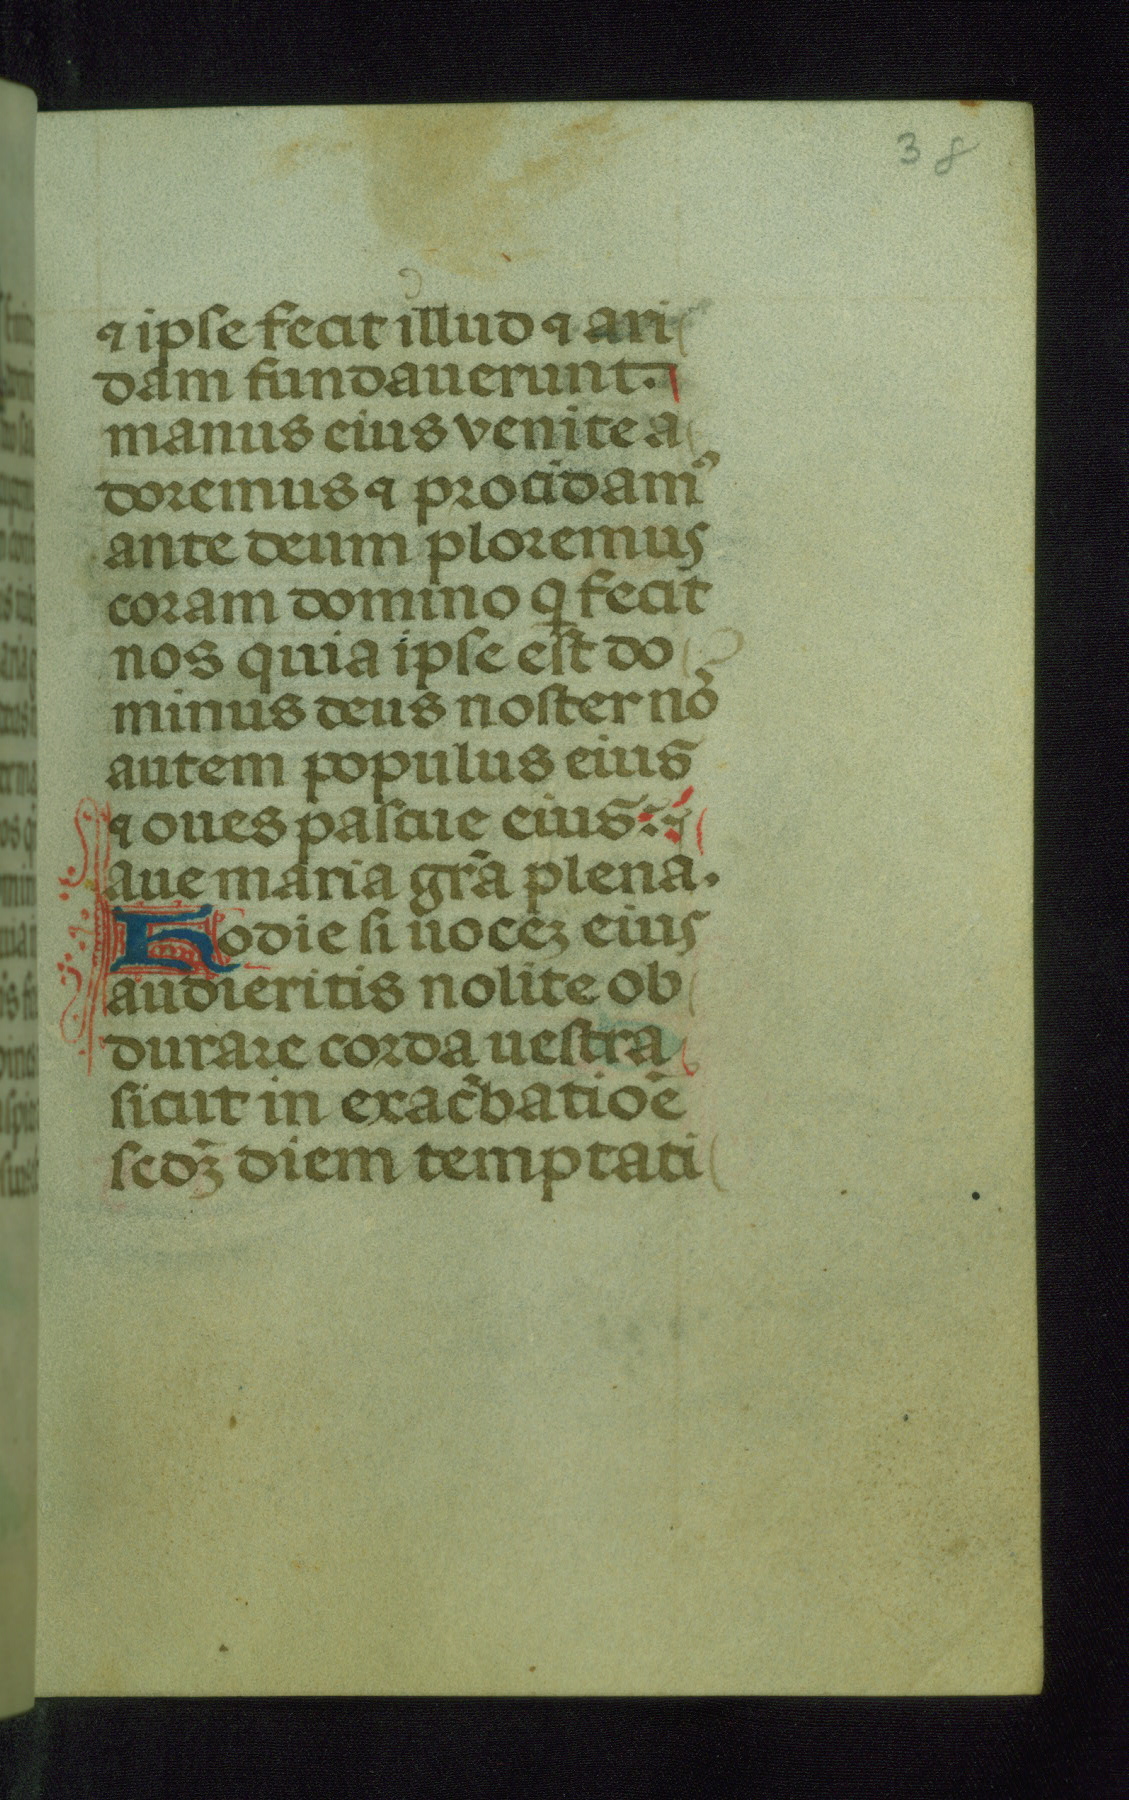 38
⁊ ipse fecit illud ⁊ ari
dam fundauerunt.
manus eius venite a
doremus ⁊ procidamꝰ
ante deum ploremus
coram domino q̄ fecit
nos quia ipse est do
minus deus noster nō
autem populus eius
⁊ oues pascue eius.
aue maria gr̄a plena.
Hodie si uocez eius
audieritis nolite ob
durare corda uestra
sicut in exac̄batioē
sedꝫ diem temptati